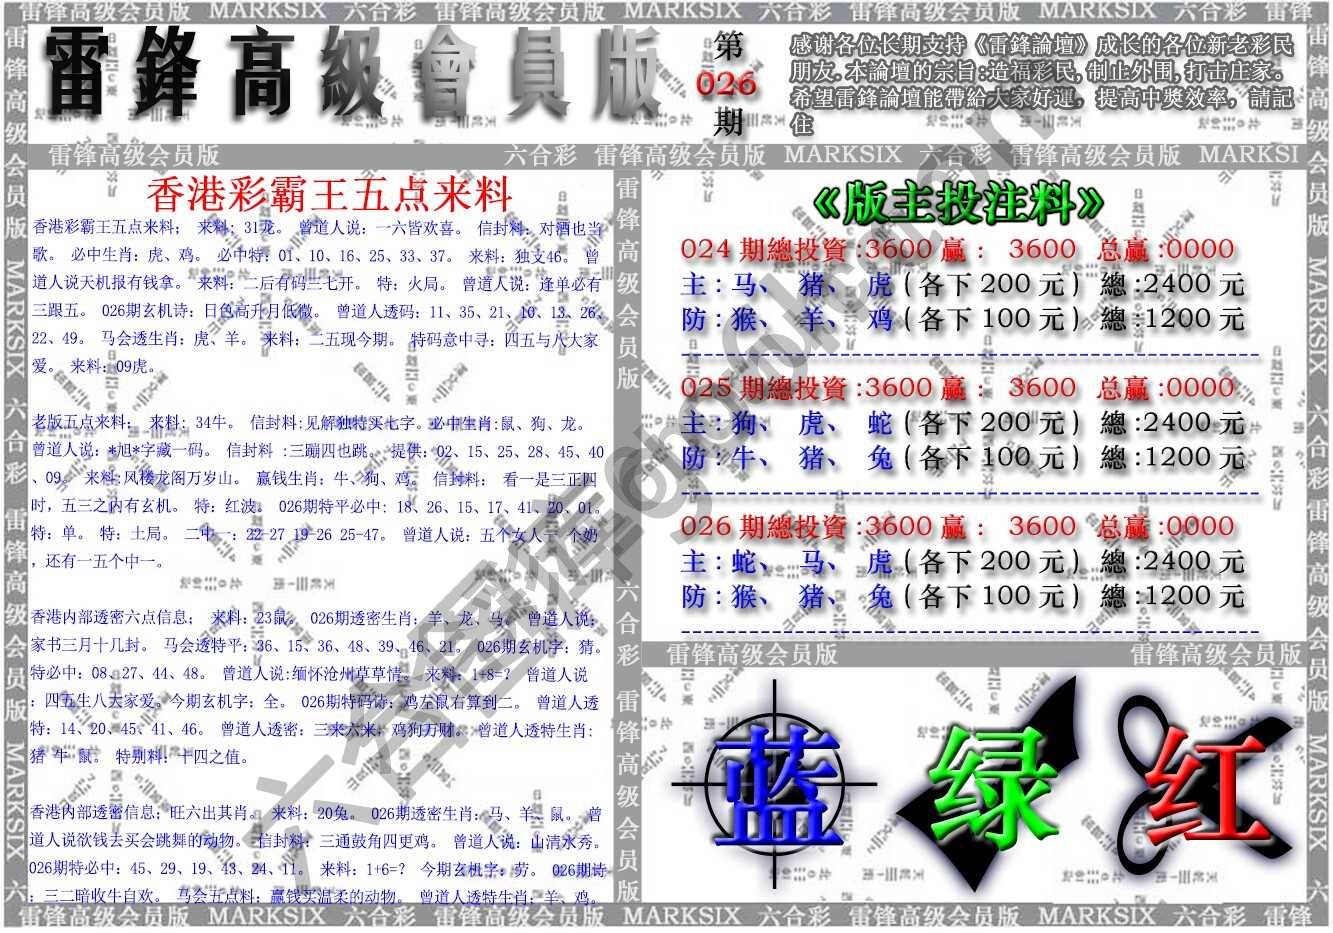 雷锋高级会员版 MARKSIX 六合彩 雷锋高级会员版 MARKSIX 六合彩 雷锋高级会员版 MARKSIX 六合彩 雷锋
雷鋒高級會員版
第
026
期
感谢各位长期支持《雷鋒論壇》成长的各位新老彩民
朋友.本論壇的宗旨:造福彩民,制止外围,打击庄家。
希望雷鋒論壇能帶給大家好運，提高中獎效率，請記
住
雷锋高级会员版
六合彩 雷锋高级会员版 MARKSIX 六合彩 雷锋高级会员版 MARKSI
香港彩霸王五点来料
香港彩霸王五点来料； 来料: 31龙。 曾道人说：一六皆欢喜。 信封料：对酒也当
歌。 必中生肖：虎、鸡。 必中特：01、10、16、25、33、37。 来料：独支46。 曾
道人说天机报有钱拿。 来料：二后有码三七开。 特：火局。 曾道人说：逢单必有
三跟五。 026期玄机诗：日色高升月低微。 曾道人透码：11、35、21、10、13、26、
22、49。 马会透生肖：虎、羊。 来料：二五现今期。 特码意中寻：四五与八大家
爱。 来料：09虎。
老版五点来料； 来料：34牛。 信封料:见解独特买七字。必中生肖:鼠、狗、龙。
曾道人说：*旭*字藏一码。 信封料 :三蹦四也跳。 提供：02、15、25、28、45、40
、09。 来料:风楼龙阁万岁山。 赢钱生肖：牛、狗、鸡。 信封料： 看一是三正四
时，五三之内有玄机。 特：红波。 026期特平必中: 18、26、15、17、41、20、01。
特：单。 特：土局。 二中一：22-27 19-26 25-47。 曾道人说：五个女人一 个奶
，还有一五个中一。
香港内部透密六点信息； 来料：23鼠。 026期透密生肖：羊、龙、马。 曾道人说；
家书三月十几封。 马会透特平：36、15、36、48、39、46、21。 026期玄机字：猜。
特必中：08、27、44、48。 曾道人说:缅怀沧州草草情。 来料：1+8=？ 曾道人说
：四五生八大家爱。今期玄机字：全。 026期特码诗：鸡左鼠右算到二。 曾道人透
特：14、20、45、41、46。 曾道人透密：三来六来，鸡狗万财。 曾道人透特生肖：
猪 牛 鼠。 特别料：十四之值。
香港内部透密信息；旺六出其肖。 来料：20兔。 026期透密生肖：马、羊、鼠。 曾
道人说欲钱去买会跳舞的动物。 信封料：三通鼓角四更鸡。 曾道人说：山清水秀。
026期特必中：45、29、19、43、24、11。 来料：1+6=？ 今期玄机字：劳。 026期诗
：三二暗收牛自欢。 马会五点料；赢钱买温柔的动物。 曾道人透特生肖：羊、鸡。
《版主投注料》
024 期總投資 :3600 贏： 3600 总赢 :0000
主：马、 猪、 虎 ( 各下 200 元 ) 總 :2400 元
防：猴、 羊、 鸡 ( 各下 100 元 ) 總 :1200 元
025 期總投資 :3600 赢： 3600 总赢 :0000
主：狗、 虎、 蛇 ( 各下 200 元 ) 總 :2400 元
防：牛、 猪、 兔 ( 各下 100 元 ) 總 :1200 元
026 期總投資 :3600 赢： 3600 总赢 :0000
主：蛇、 马、 虎 ( 各下 200 元 ) 總 :2400 元
防：猴、 猪、 兔 ( 各下 100 元 ) 總 :1200 元
雷锋高级会员版
雷锋高级会员版
蓝 绿 红
雷锋高级会员版 MARKSIX 六合彩 雷锋高级会员版 MARKSIX 六合彩 雷锋高级会员版 MARKSIX 六合彩 雷锋